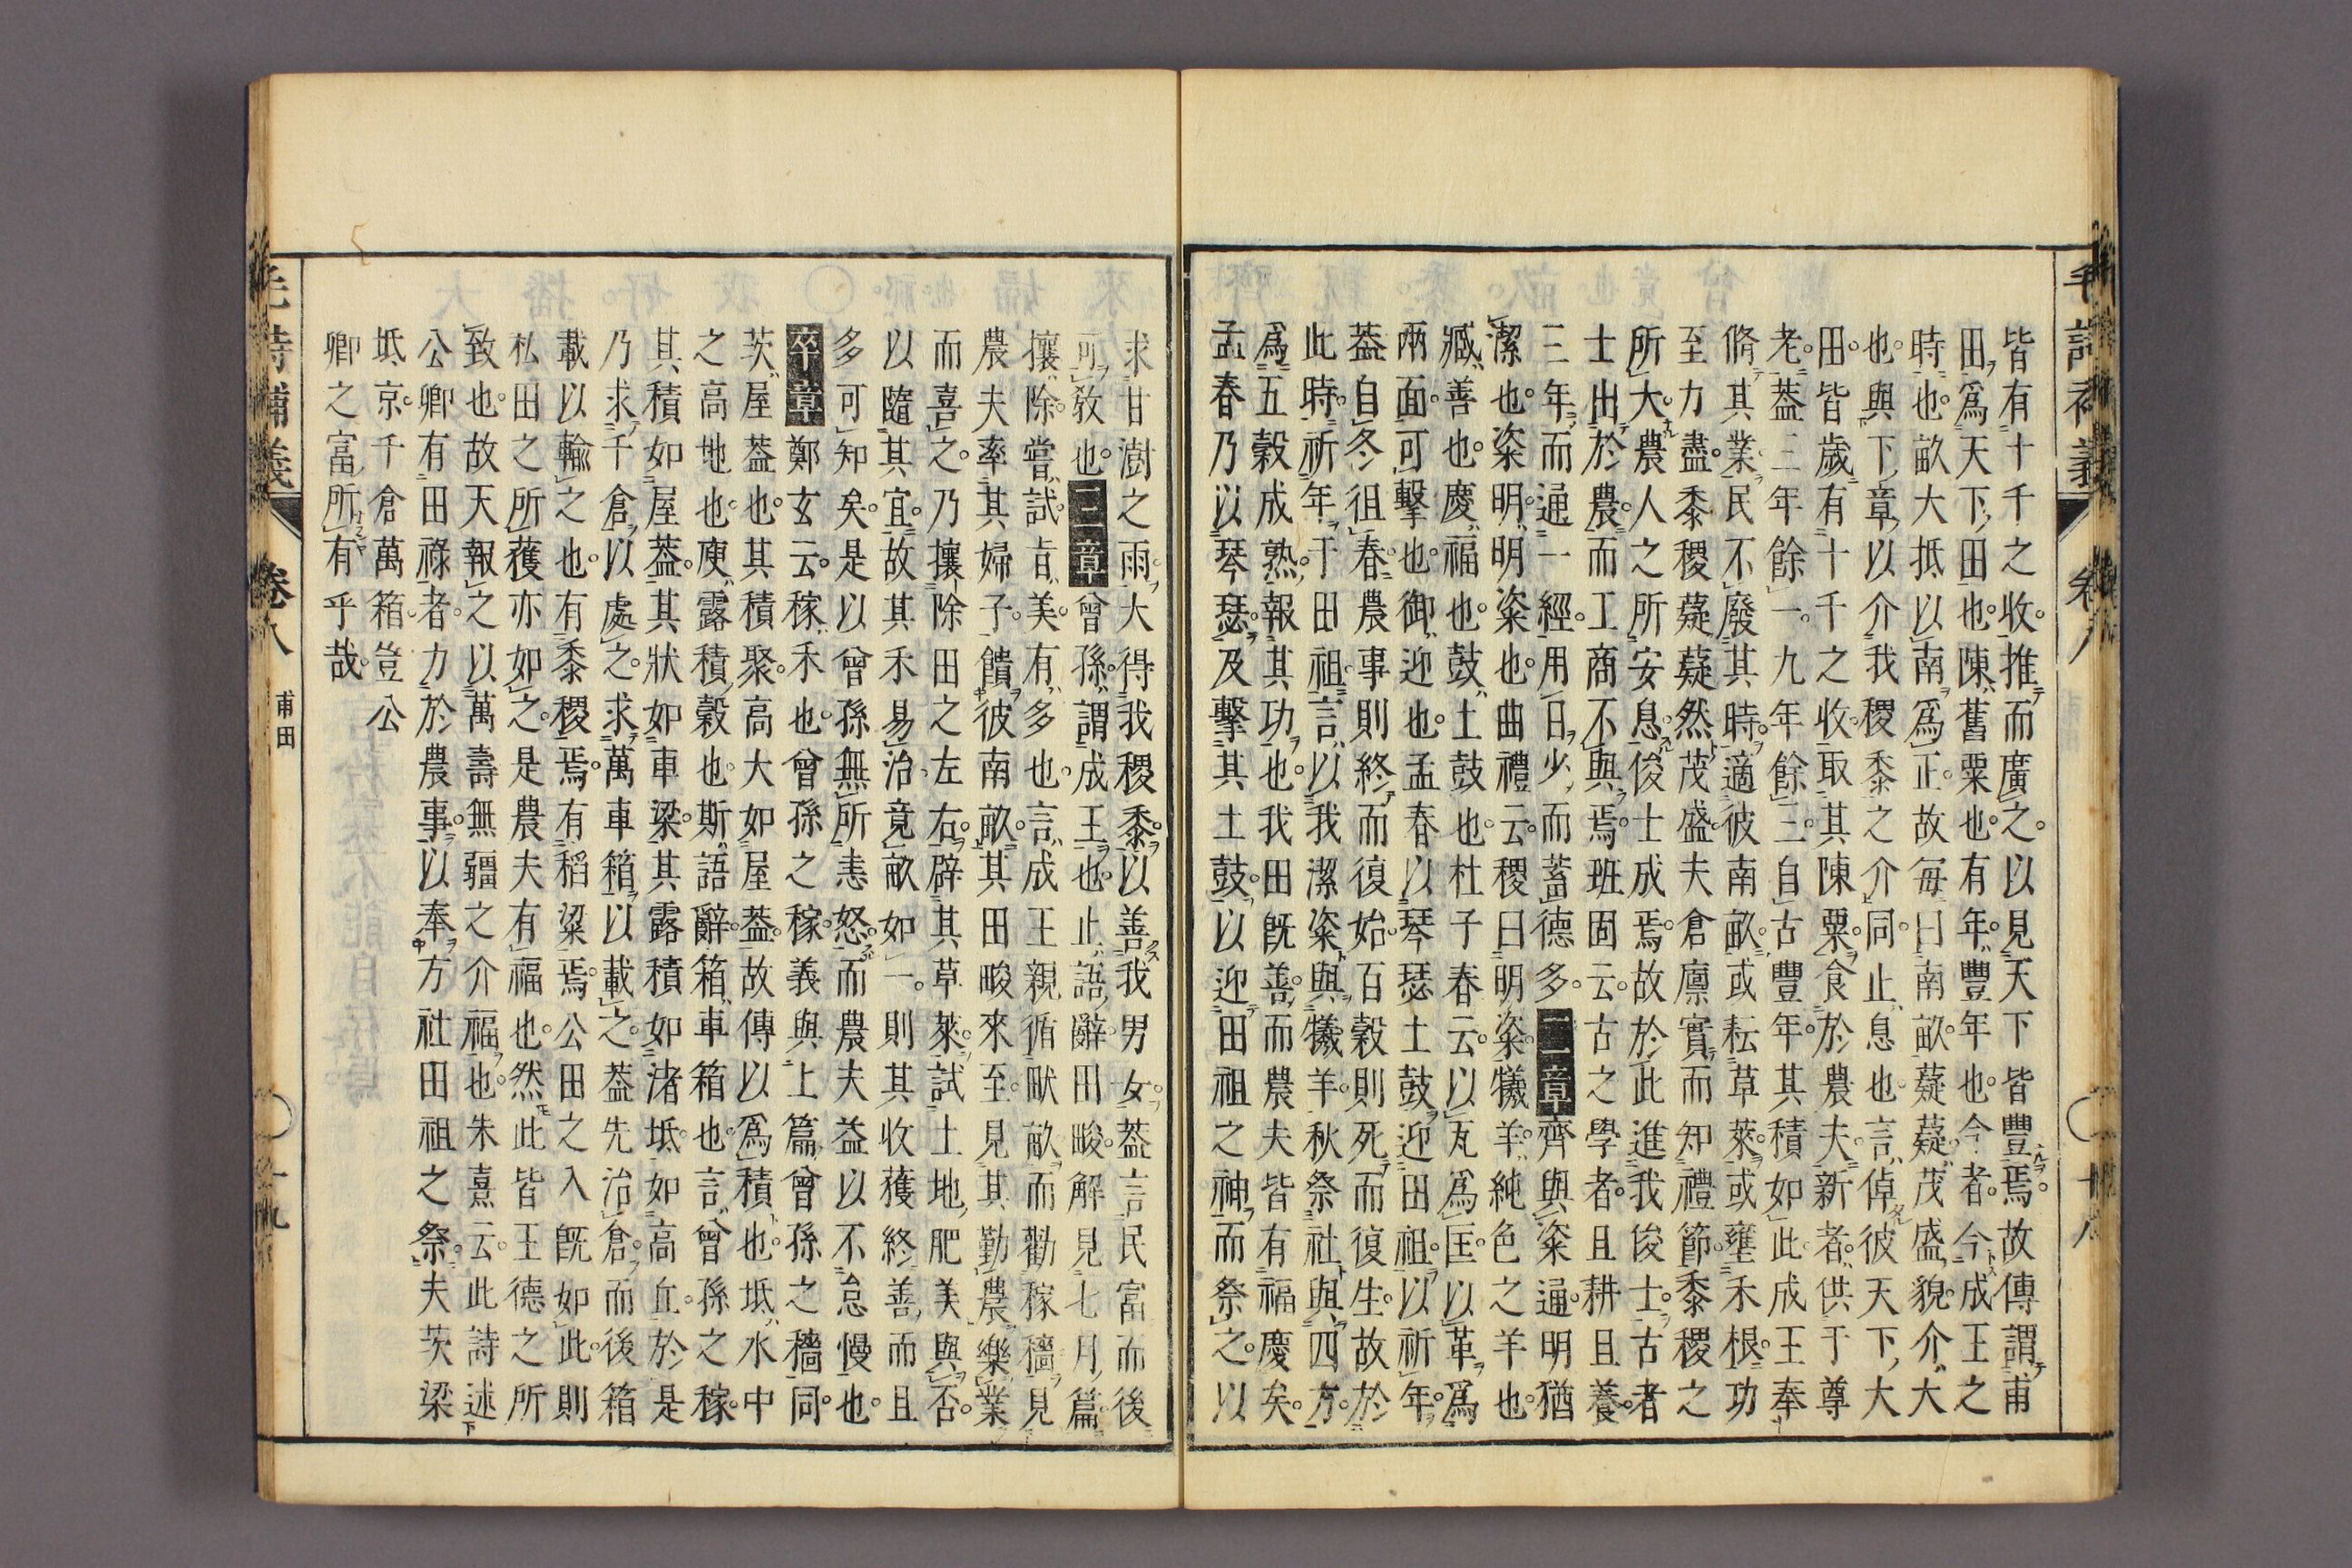 毛詩補義 卷八 十八
皆有十千之收。推而廣之。以見天下皆豐焉。故傳謂甫
田爲天下田也。陳舊粟也。有年豐年也。今者。今成王之
時也。畝大抵以南爲正。故每曰南畝。薿薿茂盛貌。介大
也。與下章以介我稷黍之介同。止息也。言倬彼天下大
田。皆歲有十千之收。取其陳粟。食於農夫。新者供于尊
老。蓋三年餘一。九年餘三。自古豐年。其積如此。成王奉
脩其業。民不廢其時。適彼南畝。或耘草萊。或壅禾根。功
至力盡。黍稷薿薿然茂盛。夫倉廩實而知禮節。黍稷之
所大。農人之所安息。俊士成焉。故於此進我俊士。古者
士出於農。而工商不與焉。班固云。古之學者。且耕且養。
三年而通一經。用日少而蓄德多。二章齊與粢通。明猶
潔也。粢明。明粢也。曲禮云。稷曰明粢。犧羊。純色之羊也。
臧善也。慶福也。鼓土鼓也。杜子春云。以瓦爲匡。以革爲
兩面。可擊也。御迎也。孟春以琴瑟土鼓。迎田祖。以祈年。
蓋自冬徂春。農事則終而復始。百穀則死而復生。故於
此時。祈年于田祖。言以我潔粢與犧羊。秋祭社與四方。
爲五穀成熟。報其功也。我田既善。而農夫皆有福慶矣。
孟春乃以琴瑟。及擊其土鼓。以迎田祖之神。而祭之。以
求甘澍之雨。大得我稷黍。以善我男女。蓋言民富而後
可敎也。三章曾孫謂成王也。止語辭。田畯解見七月篇。
攘除。嘗試。旨美。有多也。言成王親循畎畝。而勸稼穡。見
農夫率其婦子。饋彼南畝。其田畯來至。見其勤農樂業
而喜之。乃攘除田之左右。辟其草萊。試土地肥美與否。
以隨其宜。故其禾易治竟畝如一。則其收獲終善而且
多可知矣。是以曾孫無所恚怒。而農夫益以不怠慢也。
卒章鄭玄云。稼禾也。曾孫之稼。義與上篇曾孫之穡同。
茨屋蓋也。其積聚高大如屋蓋。故傳以爲積也。坻水中
之高地也。庾露積穀也。斯語辭。箱車箱也。言曾孫之稼。
其積如屋蓋。其狀如車梁。其露積如渚坻。如高丘。於是
乃求千倉以處之。求萬車箱以載之。蓋先治倉而後箱
載以輸之也。有黍稷焉。有稻粱焉。公田之入既如此。則
私田之所獲亦如之。是農夫有福也。然此皆王德之所
致也。故天報之以萬壽無疆之介福也。朱熹云。此詩述
公卿有田祿者。力於農事。以奉方社田祖之祭。夫茨梁
坻京。千倉萬箱。豈公
卿之富所有乎哉。
毛詩補義 卷八 甫田 十九